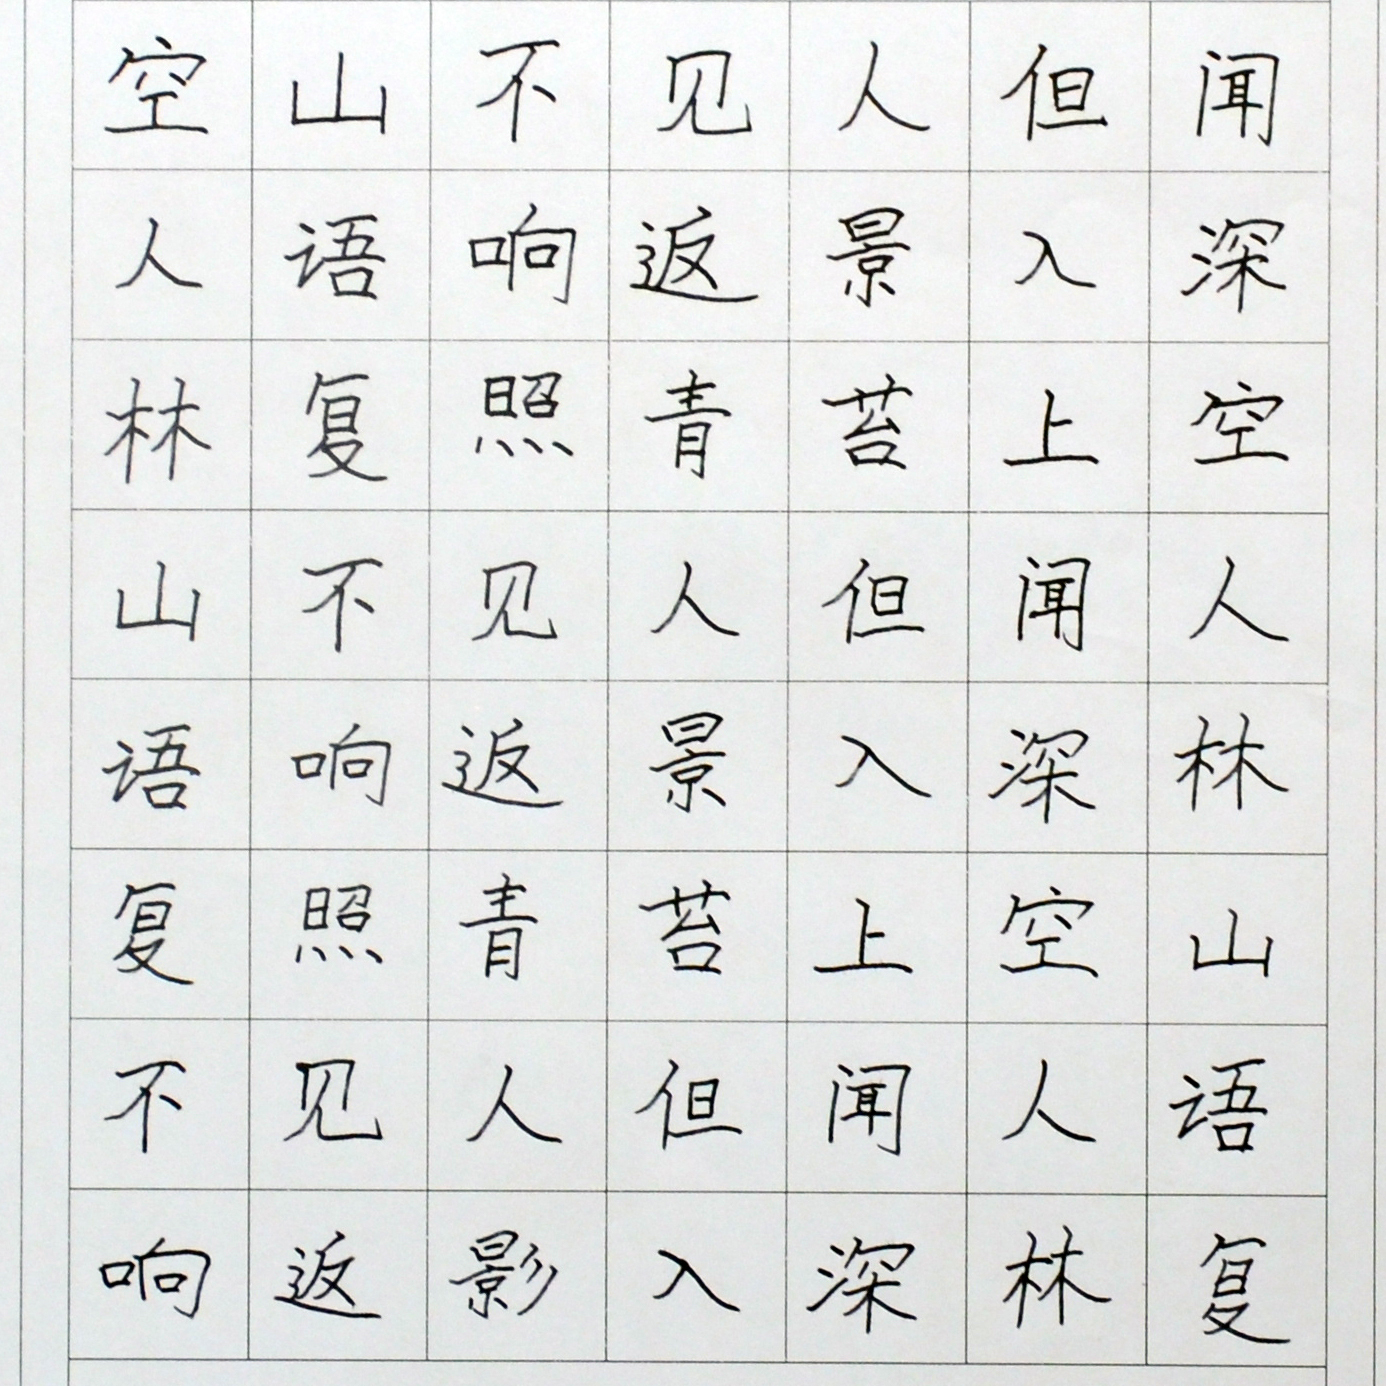 空山不见人但闻
人语响返景入深
林复照青苔上空
山不见人但闻人
语响返景入深林
复照青苔上空山
不见人但闻人语
响返影入深林复